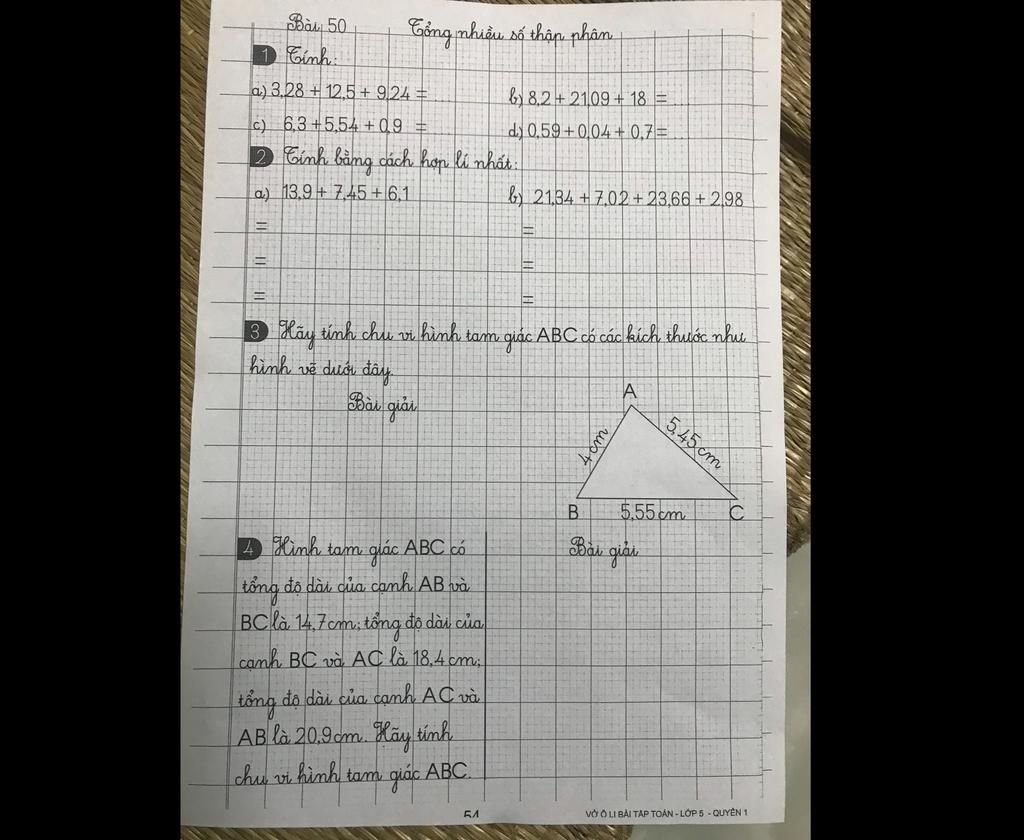 Bài 50 Tổng nhiều số thập phân
1 Tính:
a) 3,28 + 12,5 + 9,24 = b) 8,2 + 21,09 + 18 =
c) 6,3 + 5,54 + 0,9 = d) 0,59 + 0,04 + 0,7 =
2 Tính bằng cách hợp lí nhất:
a) 13,9 + 7,45 + 6,1 b) 21,34 + 7,02 + 23,66 + 2,98
= =
= =
= =
3 Hãy tính chu vi hình tam giác ABC có các kích thước như
hình vẽ dưới đây.
Bài giải
A
4cm 5,45cm
B 5,55cm C
4 Hình tam giác ABC có
tổng độ dài của cạnh AB và
BC là 14,7cm; tổng độ dài của
cạnh BC và AC là 18,4 cm;
tổng độ dài của cạnh AC và
AB là 20,9cm. Hãy tính
chu vi hình tam giác ABC.
Bài giải
54 VỞ Ô LI BÀI TẬP TOÁN - LỚP 5 - QUYỂN 1